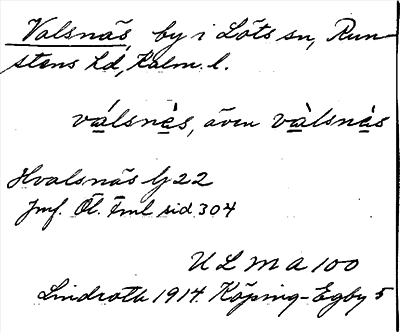 Valsnäs, by i Löts sn, Run-
stens hd, Kalm. l.
válsnès, även vàlsnès
Hvalsnäs Lj 22
Jmf. Öl. Fml sid. 304
ULMA 100
Lindroth 1914. Köping-Egby 5